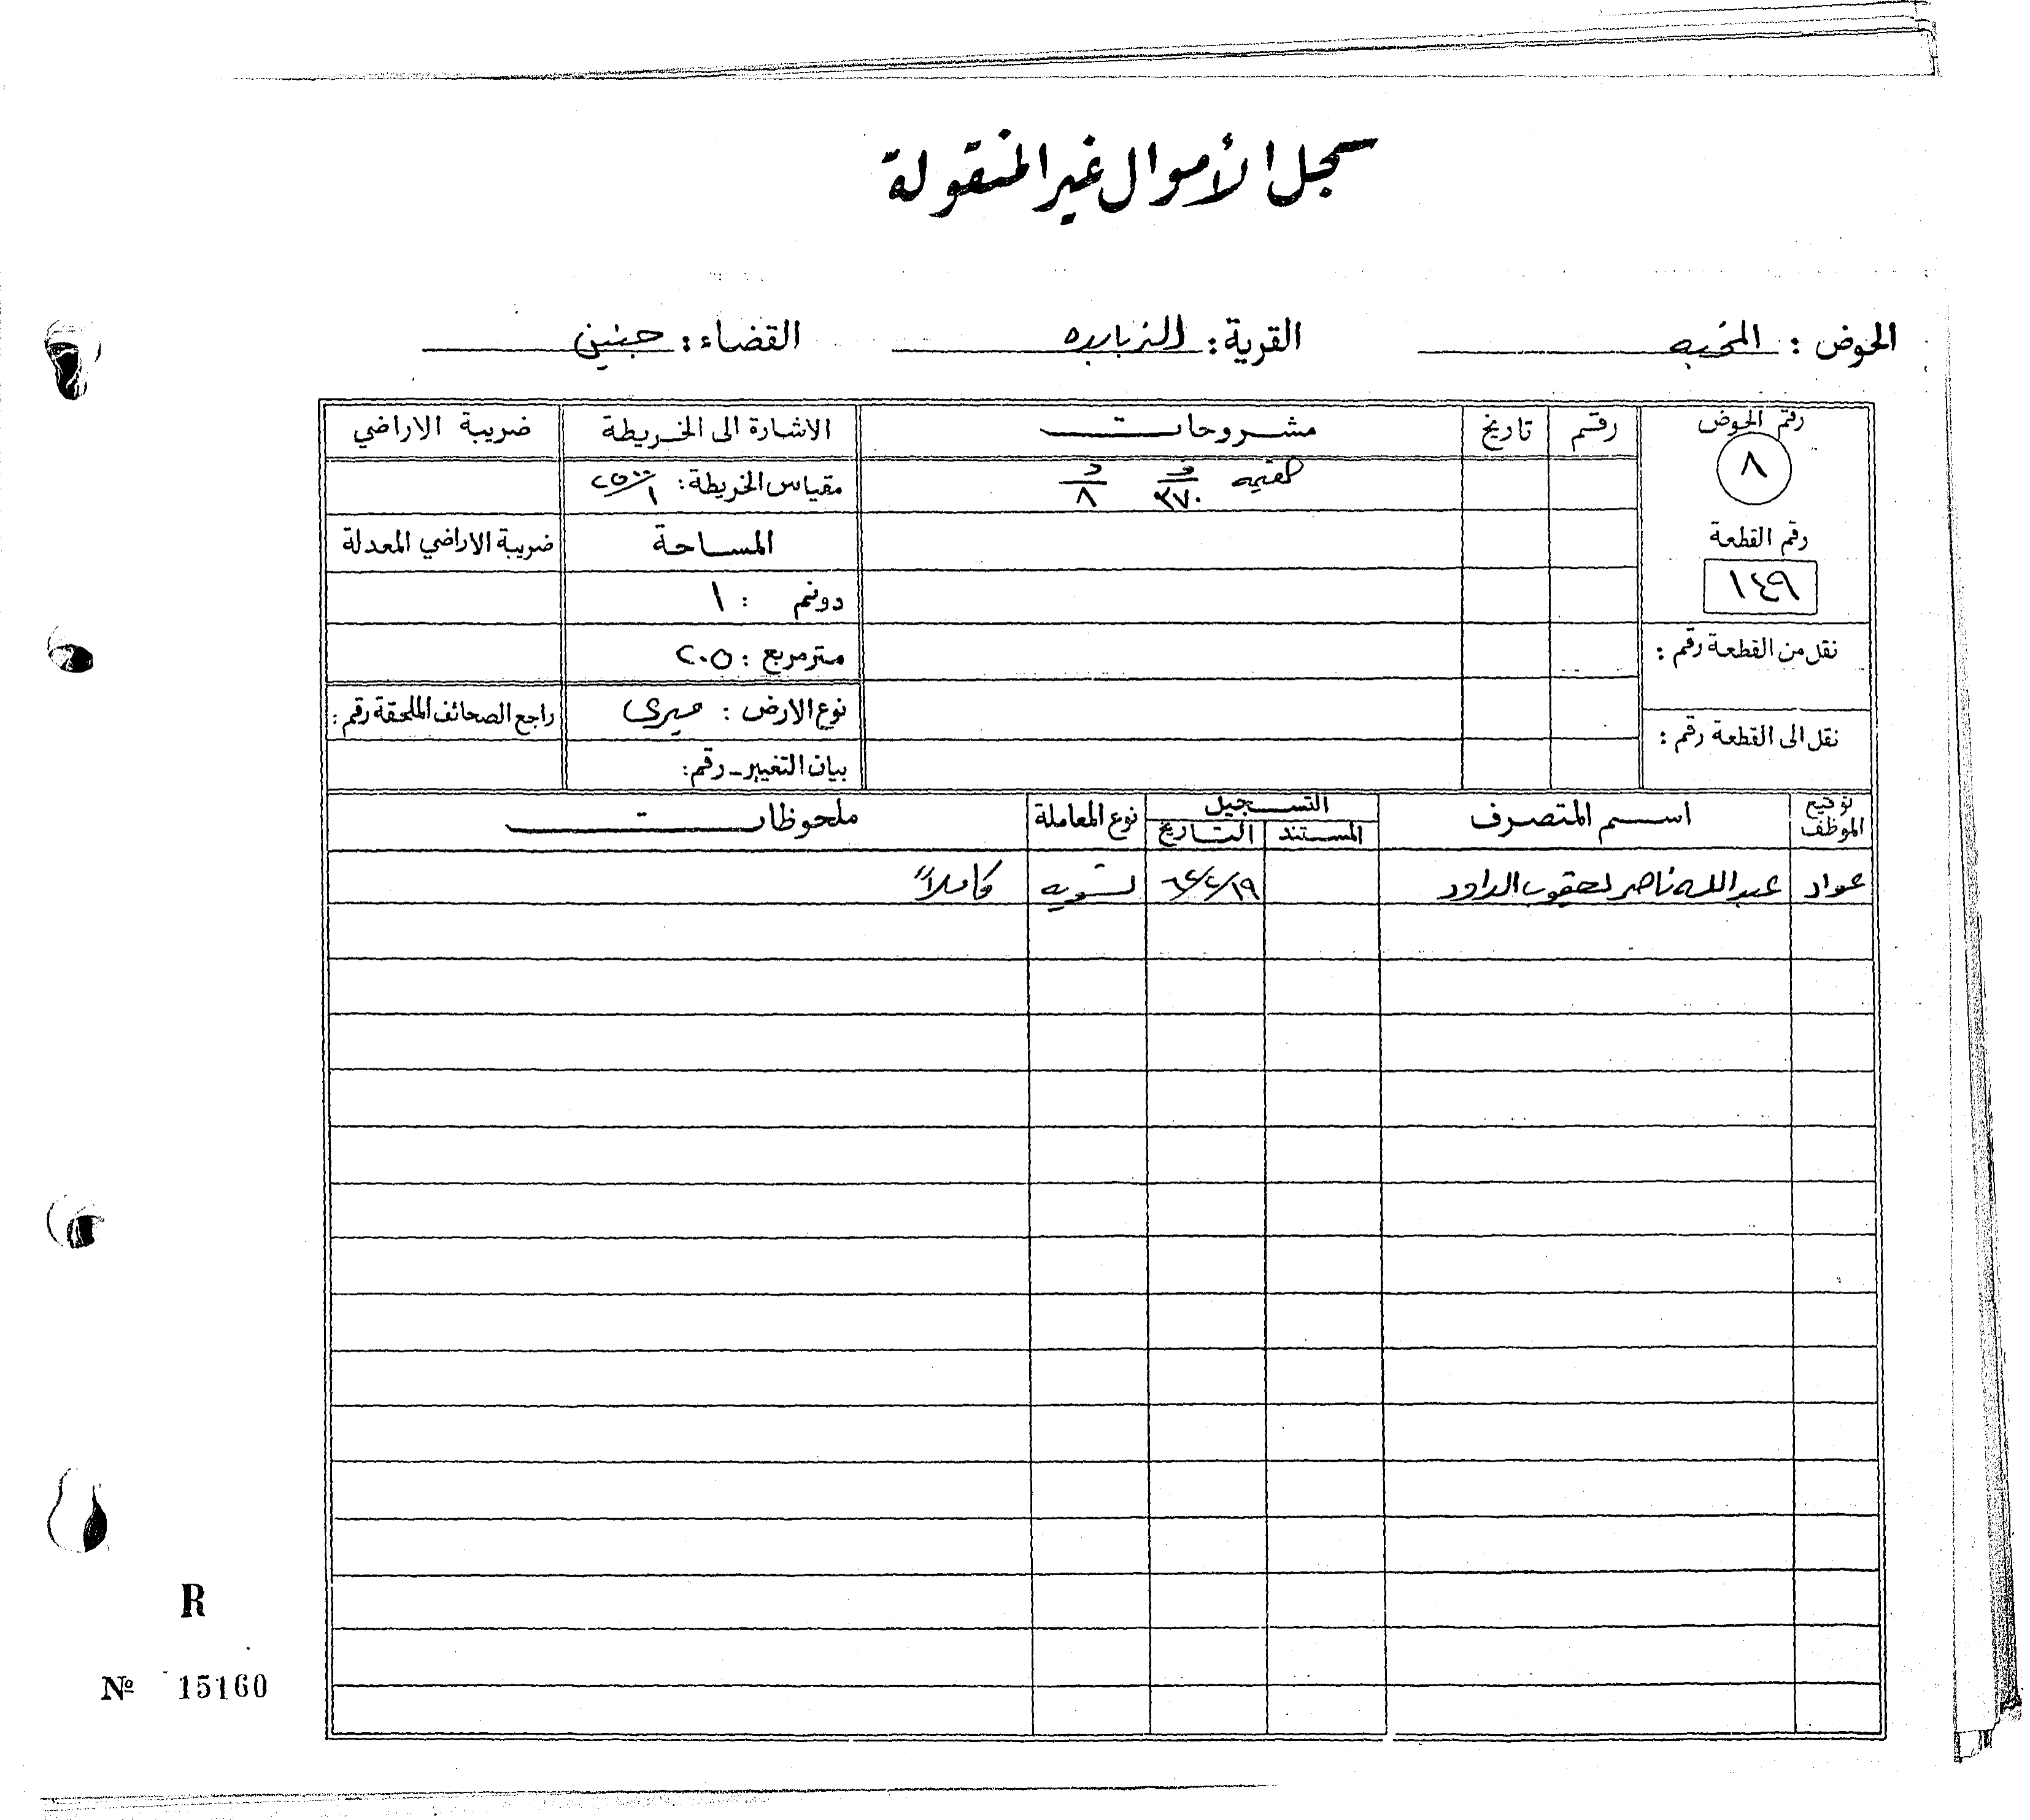 سجل الأموال غير المنقولة
الحوض : المخبه القرية : الزبابده القضاء : جنين
رقم الحوض رقم تاريخ مشروحات الاشارة الى الخريطة ضريبة الاراضي
٨ ف ٣٧٠ د ٨ مقياس الخريطة : ١/٢٥٠٠
رقم القطعة المساحة ضريبة الاراضي المعدلة
١٤٩ دونم : ١
نقل من القطعة رقم : متر مربع : ٢٠٥
نوع الارض : ميري راجع الصحائف الملحقة رقم :
نقل الى القطعة رقم : بيان التغيير - رقم :
توقيع الموظف اسم المتصرف التسجيل نوع المعاملة ملحوظات
المستند التاريخ
عواد عبدالله ناصر يعقوب الداود ١٩/٤/٦٤ تسويه كاملاً
R
№ 15160